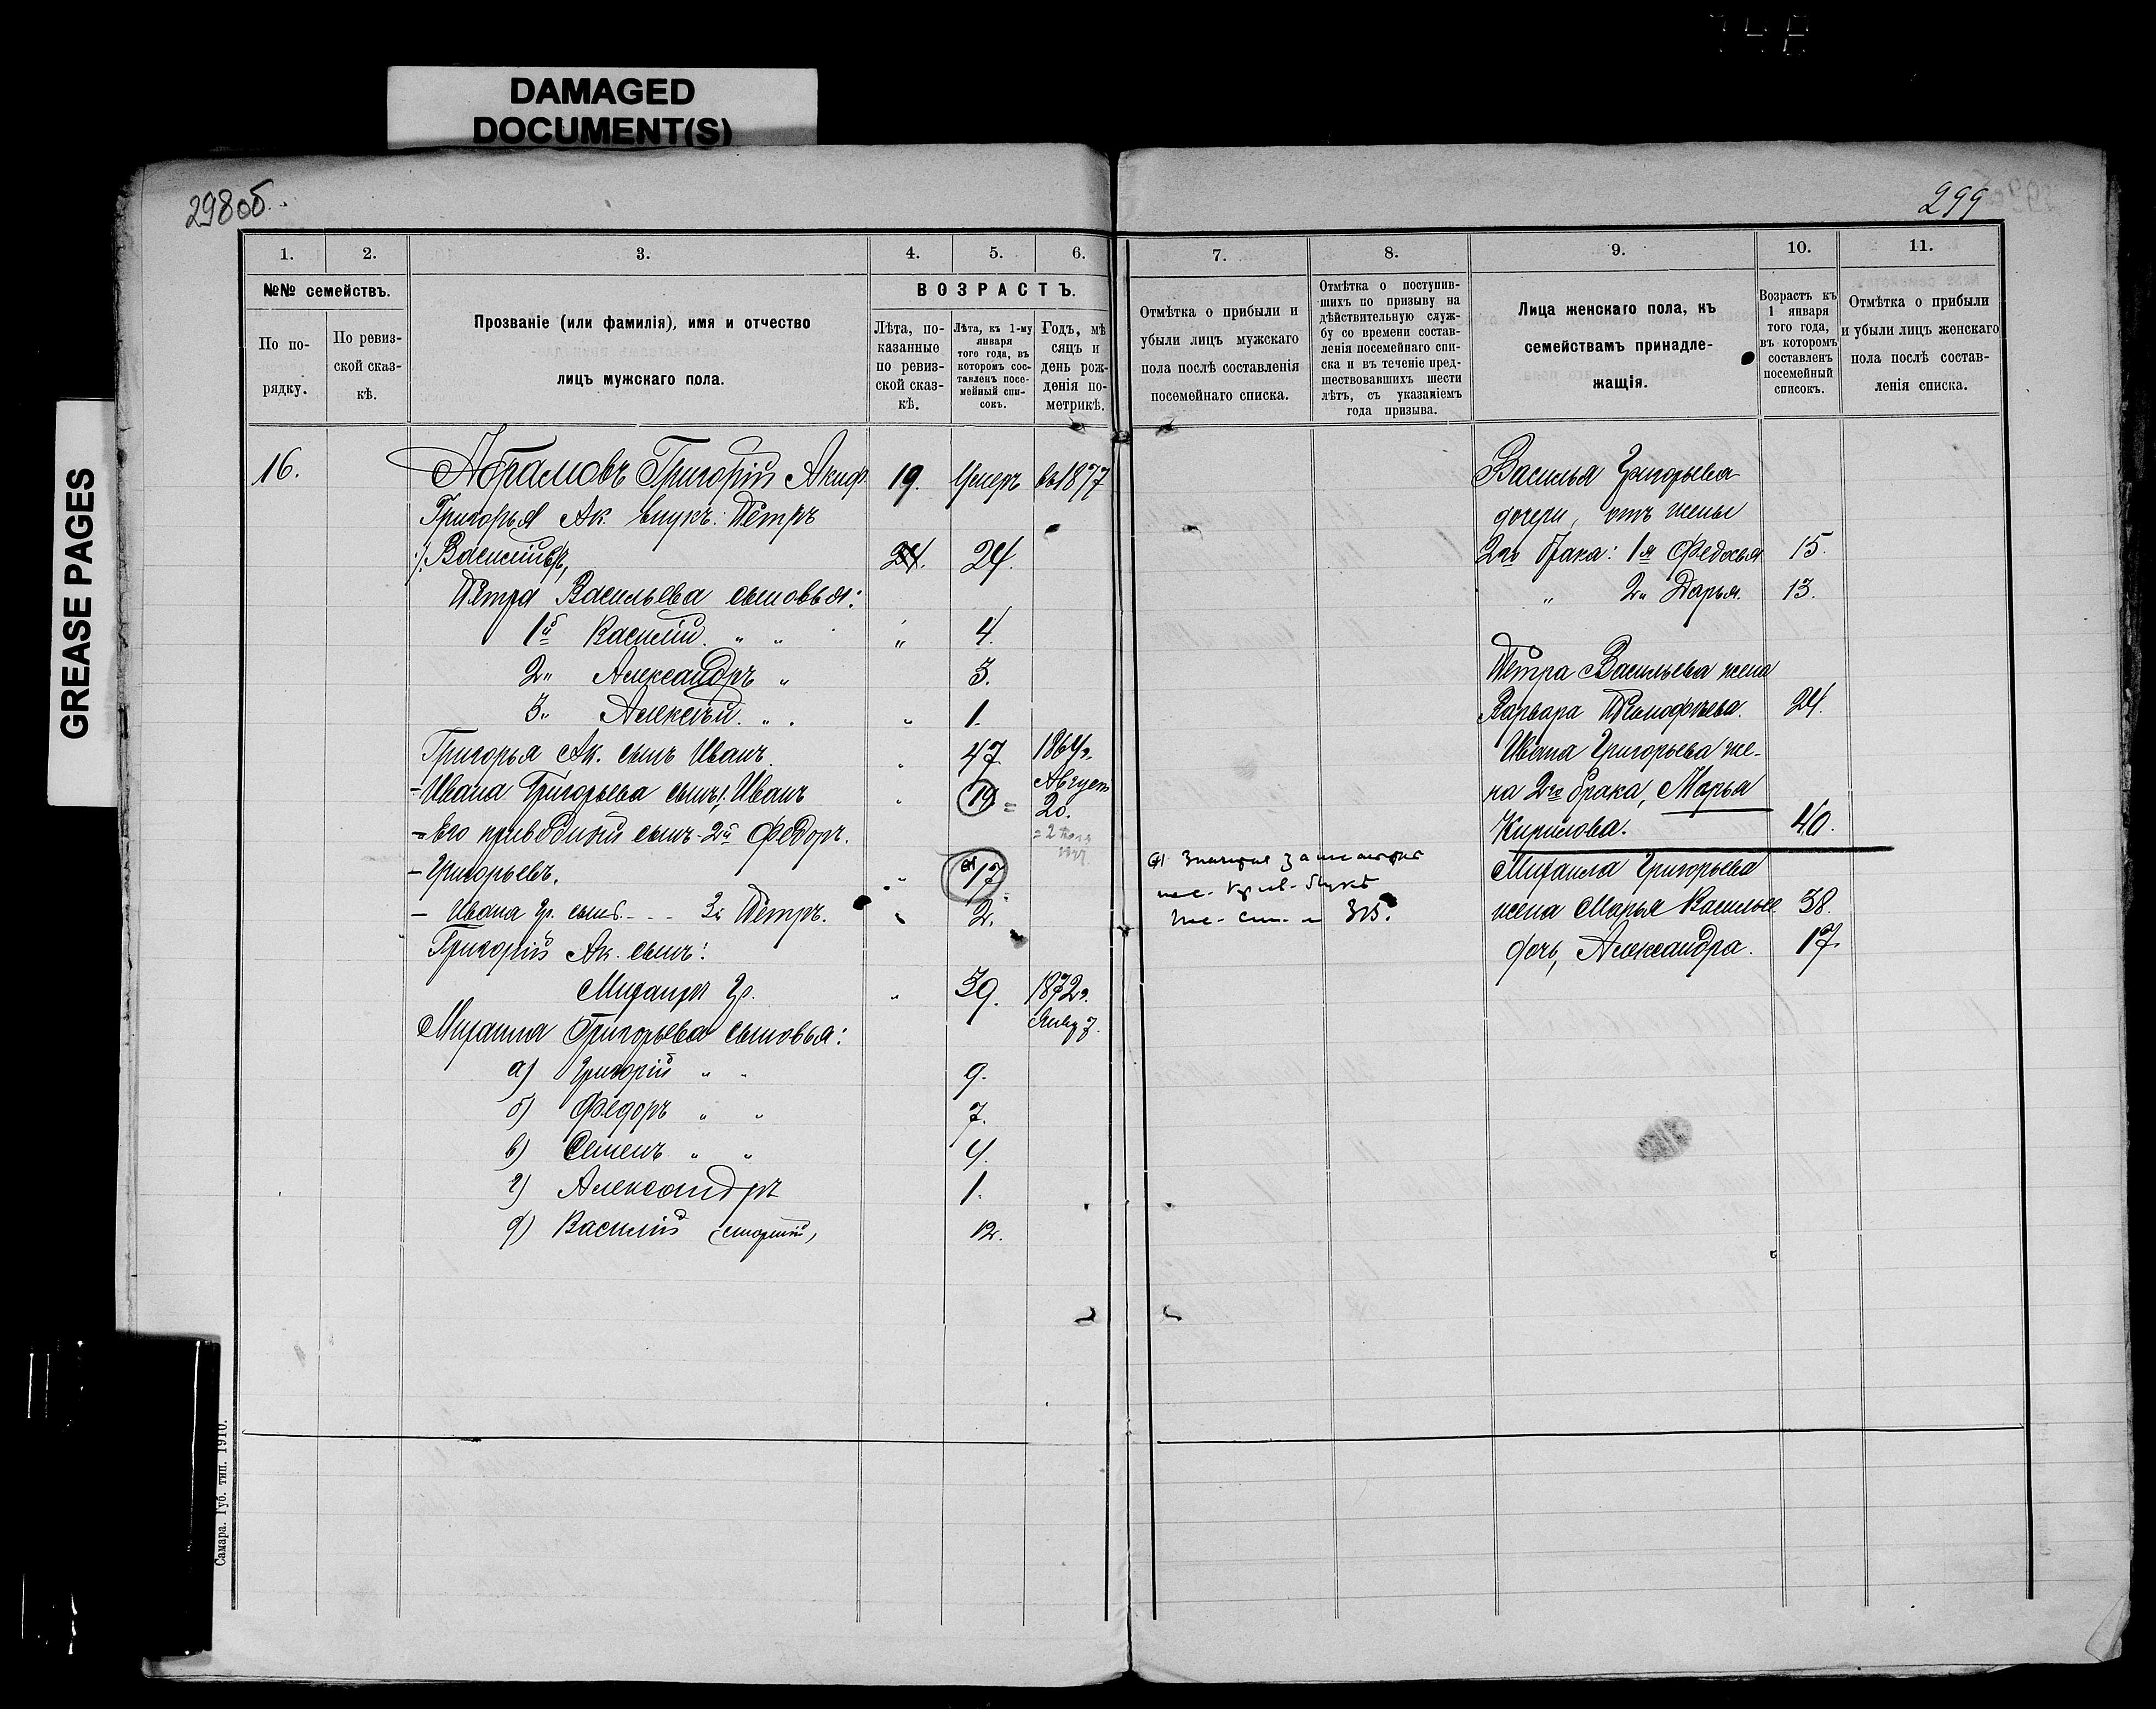 DAMAGED
DOCUMENT(S)
GREASE PAGES
298об.
299
1.
2.
3.
4.
5.
6.
№№ семействъ.
По по-
рядку.
По ревиз-
ской сказ-
кѣ.
Прозваніе (или фамилія), имя и отчество
лицъ мужскаго пола.
ВОЗРАСТЪ.
Лѣта, по-
казанные
по ревиз-
ской сказ-
кѣ.
Лѣта, къ 1-му
января
того года, въ
котором сос-
тавленъ посе-
мейный спи-
сокъ.
Годъ, мѣ
сяцъ и
день рож-
денія по-
метрикѣ.
16.
Абрамовъ Григорій Акиф. 19. Умеръ въ 1877
Григорья Ак. внукъ: Петръ
Васильевъ, 24. 24.
Петра Васильева сыновья:
1й Василій. " " " 4.
2" Александръ " 3.
3" Алексѣй. " . " 1.
Григорья Ак. сынъ Иванъ. " 47. 1864г.
- Ивана Григорьева сынъ 1. Иванъ " 19 = Август
20.
- Его приводный сынъ - 2й Федоръ.
- Григорьевъ. " 17
- Ивана Гр. сынъ. - - - 3й Петръ. " 2.
Григорій Ак. сынъ:
Михаилъ Гр. " 39. 1872г.
Янв 7.
Михаила Григорьева сыновья:
а) Григорій " " 9.
б) Федоръ " " 7.
в) Семенъ " " 4.
г) Александръ 1.
д) Василій (старшій) 12.
Самара. Губ. тип. 1910.
7.
8.
9.
10.
11.
Отмѣтка о прибыли и
убыли лицъ мужскаго
пола послѣ составленія
посемейнаго списка.
Отмѣтка о поступив-
шихъ по призыву на
дѣйствительную служ-
бу со времени состав-
ленія посемейнаго спи-
ска и въ теченіе пред-
шествовавшихъ шести
лѣтъ, съ указаніемъ
года призыва.
Лица женскаго пола, къ
семействамъ принадле-
жащія.
Возрастъ къ
1 января
того года,
въ которомъ
составленъ
посемейный
списокъ.
Отмѣтка о прибыли
и убыли лицъ женскаго
пола послѣ состав-
ленія списка.
Василья Григорьева
дочери, отъ жены
2го брака: 1я Федосья 15.
" 2" Дарья. 13.
Петра Васильева жена
Варвара Тимофѣева. 24.
Ивана Григорьева же-
на 2го брака, Марья
Кирилова. 40.
Михаила Григорьева
жена Марья Васильев. 38.
дочь, Александра. 17.
Значится за
315.